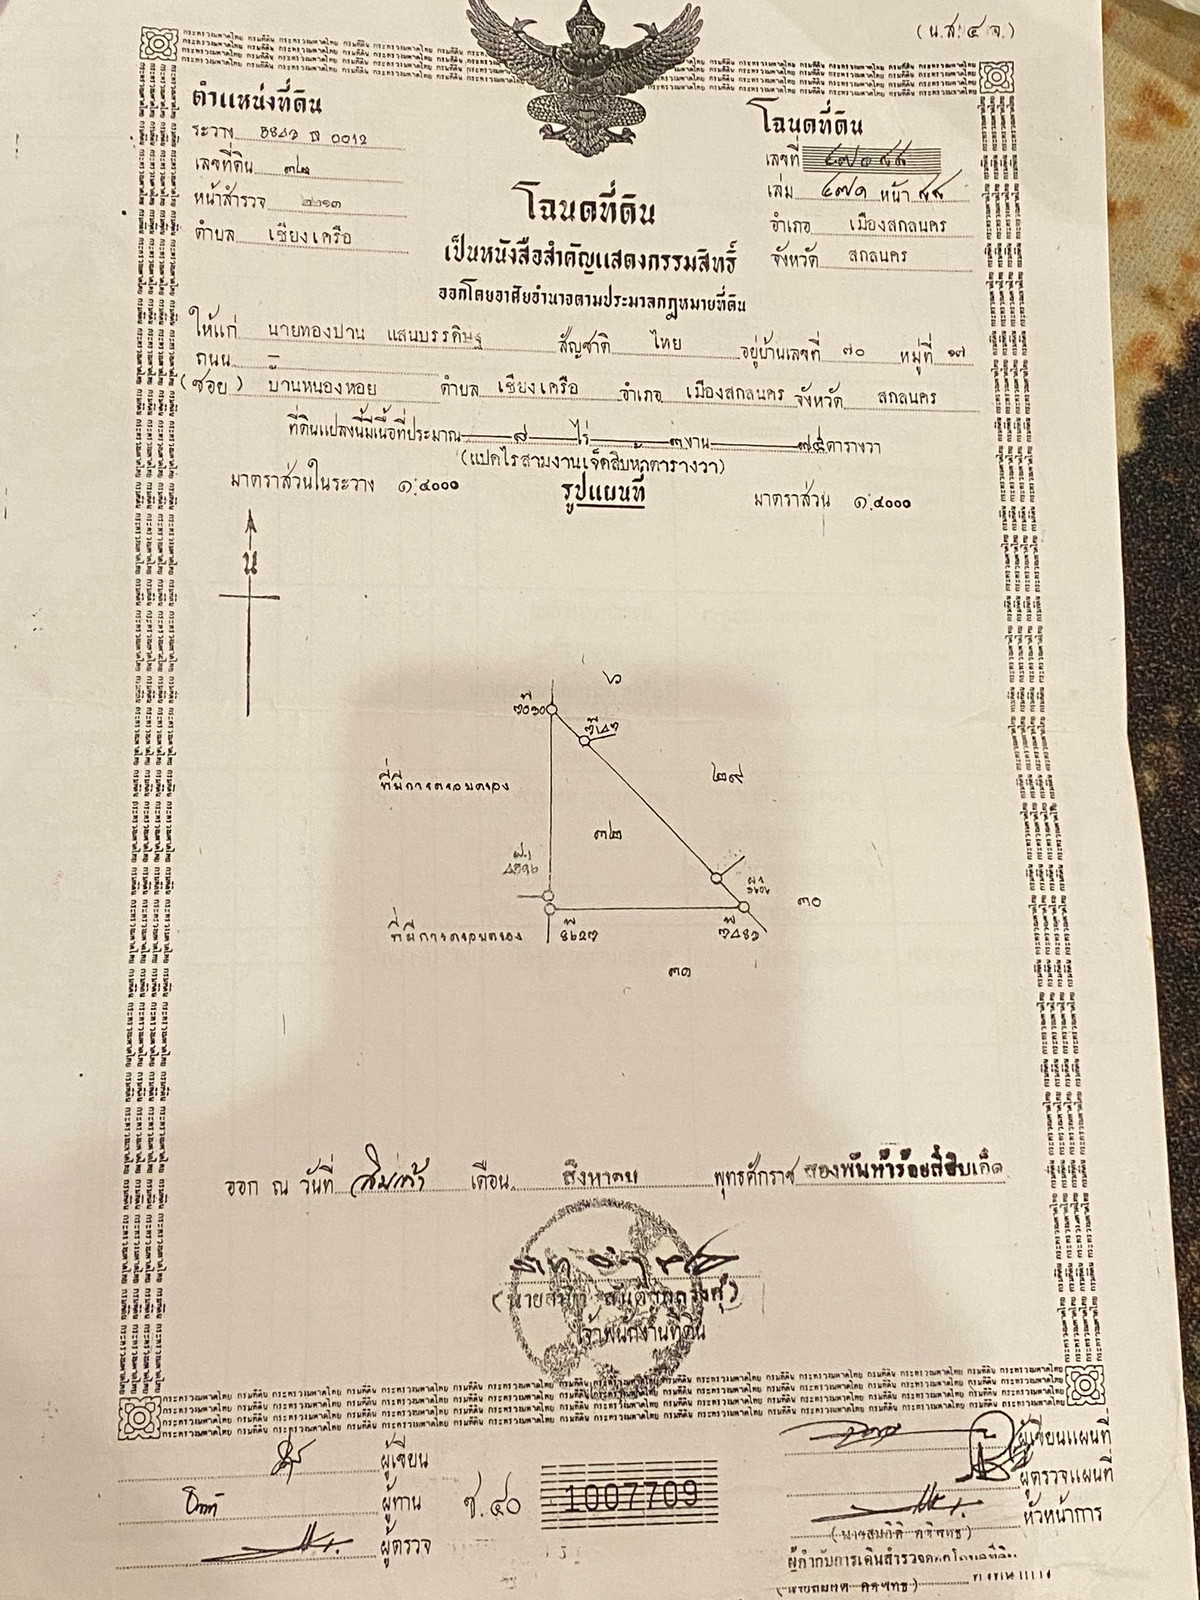 (น.ส.๔ จ.)
ตำแหน่งที่ดิน
ระวาง
เลขที่ดิน ๓๒
หน้าสำรวจ ๒๒๑๓
ตำบล เชียงเครือ
โฉนดที่ดิน
เลขที่
เล่ม ๔๗๑ หน้า
อำเภอ เมืองสกลนคร
จังหวัด สกลนคร
โฉนดที่ดิน
เป็นหนังสือสำคัญแสดงกรรมสิทธิ์
ออกโดยอาศัยอำนาจตามประมวลกฎหมายที่ดิน
ให้แก่ นายทองปาน แสนบรรดิษฐ สัญชาติ ไทย อยู่บ้านเลขที่ ๗๐ หมู่ที่ ๑๗
ถนน –
(ซอย) บ้านหนองหอย ตำบล เชียงเครือ อำเภอ เมืองสกลนคร จังหวัด สกลนคร
ที่ดินแปลงนี้มีเนื้อที่ประมาณ ๘ ไร่ ๓ งาน ๗๕ ตารางวา
(แปดไร่สามงานเจ็ดสิบห้าตารางวา)
มาตราส่วนในระวาง ๑:๔๐๐๐ รูปแผนที่ มาตราส่วน ๑:๔๐๐๐
น
๖
๒๙
ที่มีการครอบครอง
๓๒
๓๐
ที่มีการครอบครอง
๓๑
ออก ณ วันที่ สิบเก้า เดือน สิงหาคม พุทธศักราช สองพันห้าร้อยสี่สิบเอ็ด
เจ้าพนักงานที่ดิน
ผู้เขียน
ผู้ทาน
ผู้ตรวจ
ช.๔๐
1007709
ผู้เขียนแผนที่
ผู้ตรวจแผนที่
หัวหน้าการ
ผู้กำกับการเดินสำรวจออกโฉนดที่ดิน